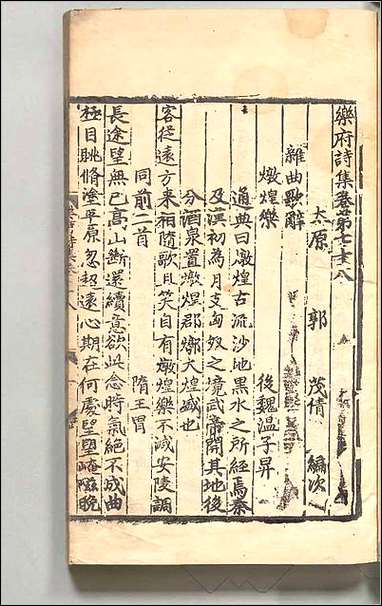 樂府詩集卷第七十八
太原 郭 茂倩 編次
雜曲歌辭
燉煌樂 後魏溫子昇
通典曰燉煌古流沙地黒水之所經焉秦
及漢初為月支匈奴之境武帝開其地後
分酒泉置燉煌郡燉大煌盛也
客從遠方来相隨歌且笑自有燉煌樂不减安陵調
同前二首 隋王胄
長途望無已髙山斷還續意欲此念時氣絶不成曲
極目眺脩塗平原忽超遠心期在何處望望崦嵫晚